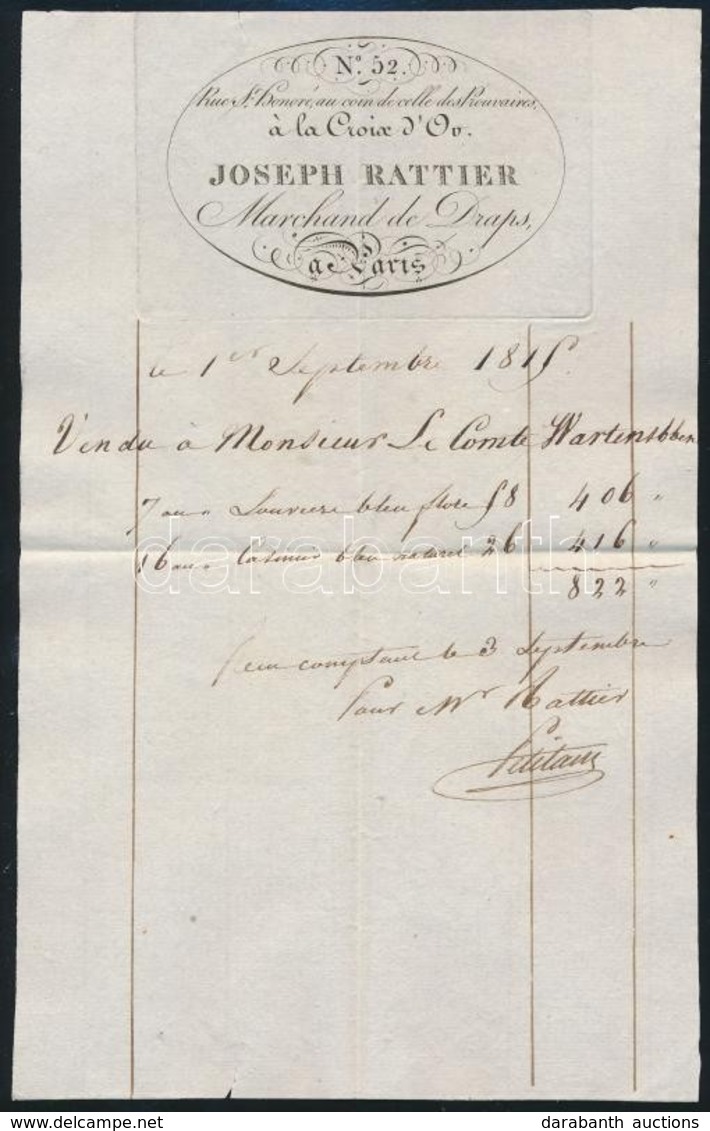 N.º 52.
Rue S.t Honoré, au coin de celle des Prouvaires,
à la Croix d'Or.
JOSEPH RATTIER
Marchand de Draps,
à Paris
le 1er Septembre 1815
Vendu à Monsieur Le Comte Wartensbben
7 au " Louviers bleu flore 58 406 "
16 au " Casimir bleu 26 416 "
822 "
Reçu comptant le 3 Septembre
Pour Mr Rattier
darabanth
www.delcampe.net
darabanth auctions